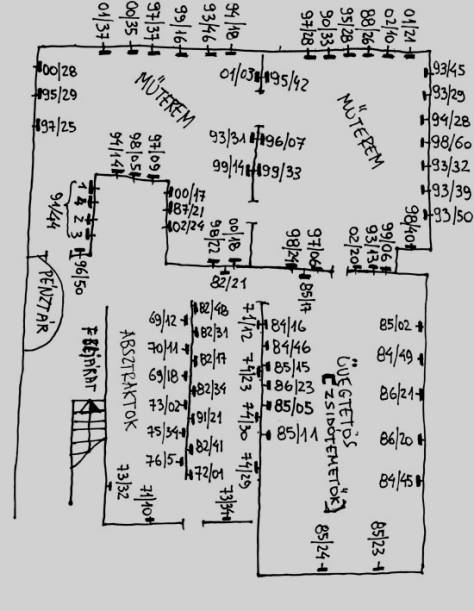 01/37
00/35
97/37
99/16
93/46
94/18
97/28
90/33
95/28
88/26
02/10
01/21
00/28
95/29
97/25
MŰTEREM
01/03
95/42
93/31
96/07
99/14
99/33
MŰTEREM
93/45
93/29
94/28
98/60
93/32
93/39
93/50
98/40
94/14
98/05
97/09
00/17
87/21
02/24
1
4
2
3
94/44
96/50
98/22
00/18
82/21
98/24
97/06
85/17
02/20
93/13
99/06
PÉNZTÁR
ABSZTRAKTOK
69/12
70/11
69/18
73/02
75/34
76/5
82/48
82/31
82/17
82/34
91/21
82/41
72/01
71/12
74/23
74/30
74/29
84/16
84/46
85/15
86/23
85/05
85/11
ÜVEGTETŐS
[ZSIDÓTEMETŐK]
85/02
84/49
86/21
86/20
84/45
73/32
71/10
73/34
85/24
85/23